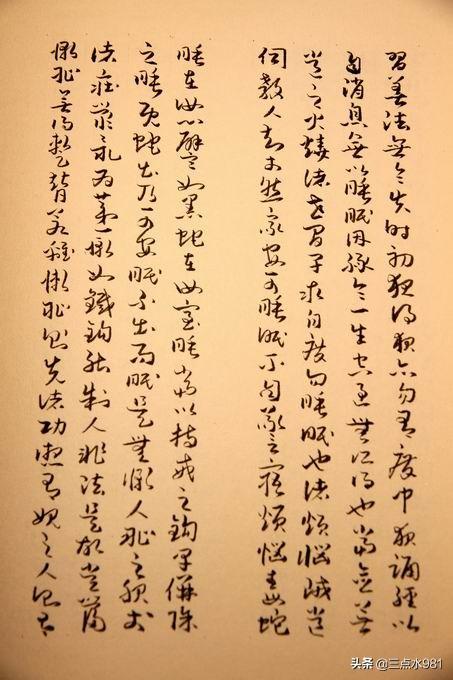 習善法無令失時初夜後夜亦勿有廢中夜誦經以
自消息無以睡眠因緣令一生空過無所得也當念無
常之火燒諸世間早求自度勿睡眠也諸煩惱賊常
伺殺人甚於怨家安可睡眠不自警寤煩惱毒蛇
睡在汝心譬如黑蚖在汝室睡當以持戒之鉤早併除
之睡既蛇出乃可安眠不出而眠是無慚人恥之服於
諸莊嚴最為第一慚如鐵鉤能制人非法是故常當
慚恥無得暫替若離慚恥則失諸功德有愧之人則有
头条 @三点水981